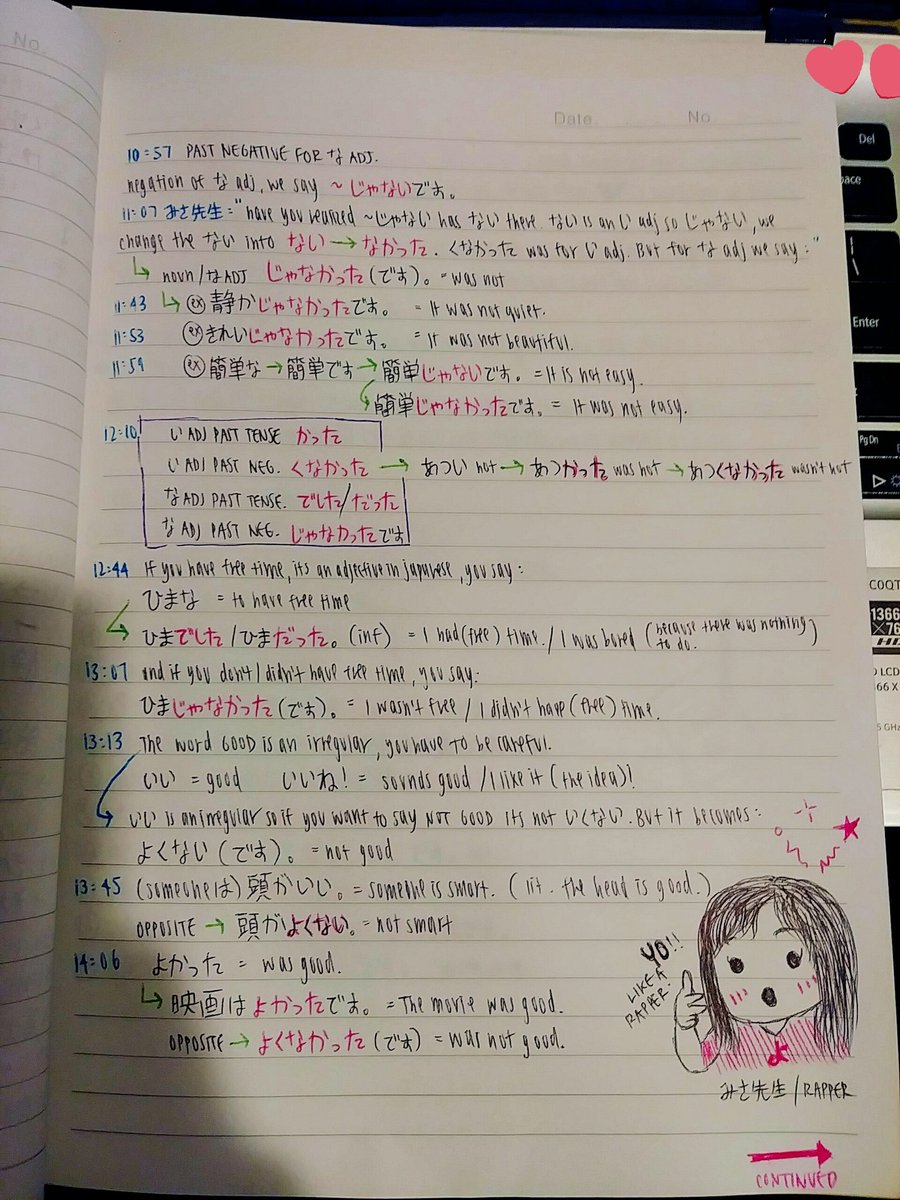 No.
Date No
10:57 PAST NEGATIVE FOR な ADJ.
negation of な adj, we say ~じゃないです。
11:07 みさ先生="have you realized ~じゃない has ない there. ない is an い adj so じゃない, we
change the ない into ない → なかった. くなかった was for い adj. But for な adj we say:"
noun/なADJ じゃなかった(です)。= was not
11:43 ex 静かじゃなかったです。 = It was not quiet.
11:53 ex きれいじゃなかったです。 = It was not beautiful.
11:59 ex 簡単な→簡単です→簡単じゃないです。= It is not easy.
簡単じゃなかったです。= It was not easy.
12:10 い ADJ PAST TENSE かった
い ADJ PAST NEG. くなかった → あつい hot → あつかった was hot → あつくなかった wasn't hot
な ADJ PAST TENSE. でした/だった
な ADJ PAST NEG. じゃなかったです
12:44 If you have free time, its an adjective in japanese, you say:
ひまな = to have free time
ひまでした/ひまだった。(inf) = I had (free) time. / I was bored (because there was nothing to do.)
13:07 and if you don't/didn't have free time, you say:
ひまじゃなかった(です)。= I wasn't free / I didn't have (free) time.
13:13 The word GOOD is an irregular, you have to be careful.
いい = good いいね! = sounds good / I like it (the idea)!
いい is an irregular so if you want to say NOT GOOD its not いくない. But it becomes:
よくない(です)。 = not good
13:45 (someoneは)頭がいい。= someone is smart. (lit. the head is good.)
OPPOSITE → 頭がよくない。= not smart
14:06 よかった = was good.
映画はよかったです。= The movie was good.
OPPOSITE → よくなかった(です) = was not good.
YO!!
LIKE A
RAPPER.
よ
みさ先生/RAPPER
CONTINUED
Del
Enter
PgDn
1366